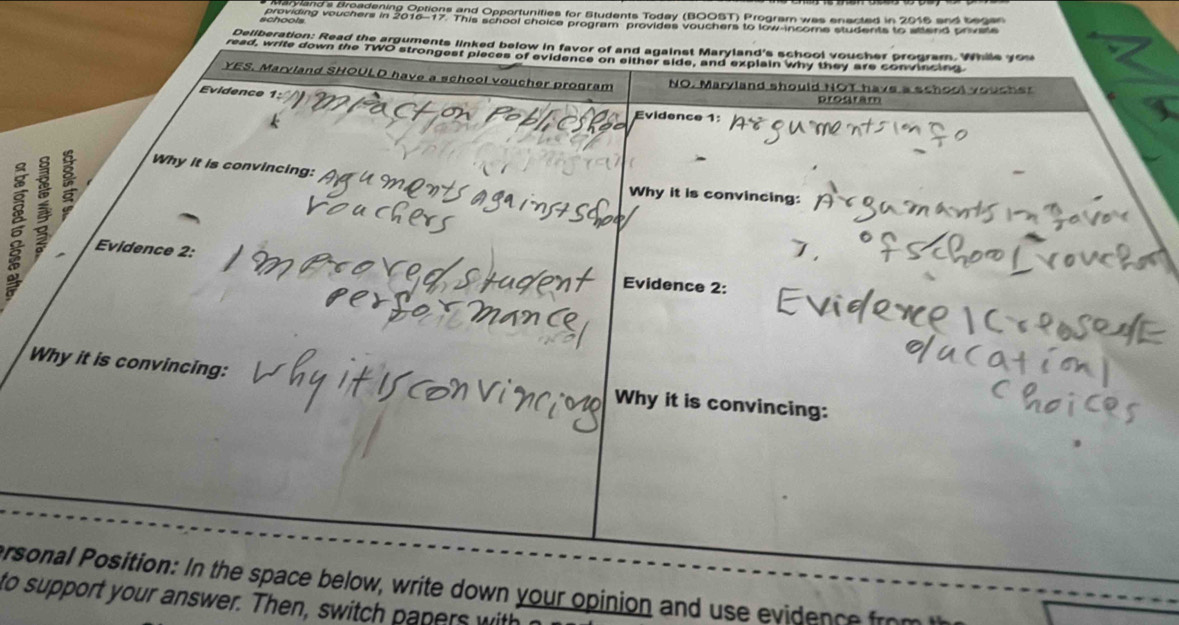 Maryland's Broadening Options and Opportunities for Students Today (BOOST) Program was enacted in 2016 and began
providing vouchers in 2016–17. This school choice program provides vouchers to low-income students to attend private
schools.
Deliberation: Read the arguments linked below in favor of and against Maryland's school voucher program. While you
read, write down the TWO strongest pieces of evidence on either side, and explain why they are convincing.
YES, Maryland SHOULD have a school voucher program
NO, Maryland should NOT have a school voucher program
Evidence 1: Impact on Poblic
Evidence 1: Arguments in fo
Why it is convincing: Aguments against School
vouchers
Why it is convincing: Argumants in favor
of school voucher
Evidence 2: Improved student
performance
Evidence 2: Evidence Icreased E
ducation
choices
Why it is convincing: why it is convincing
Why it is convincing:
schools for
compete with priva
or be forced to close afte
ersonal Position: In the space below, write down your opinion and use evidence from
to support your answer. Then, switch papers with